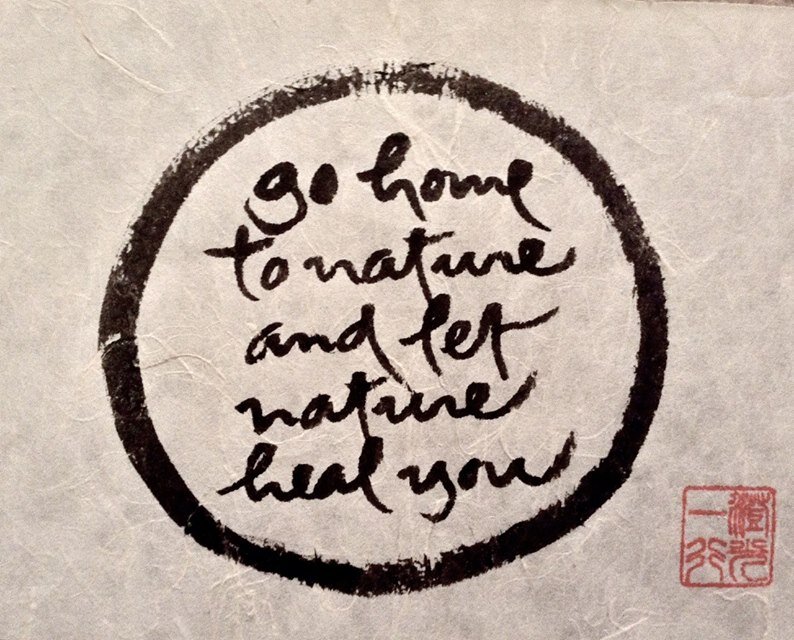 go home
to nature
and let
nature
heal you
澄光
一行